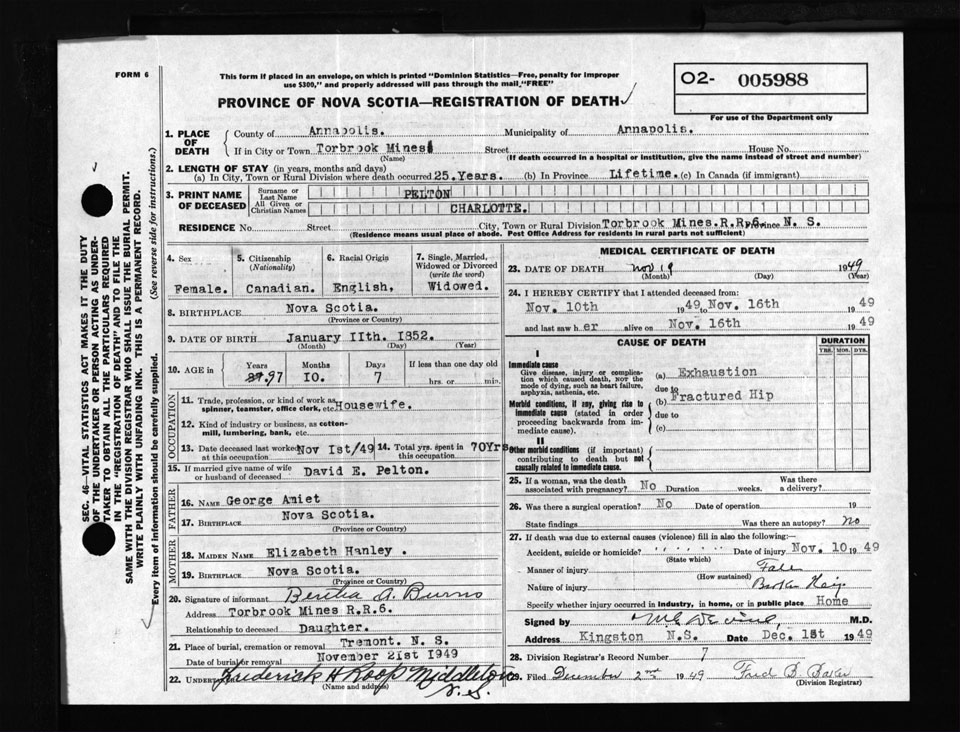 FORM 6
This form if placed in an envelope, on which is printed "Dominion Statistics—Free, penalty for improper
use $300," and properly addressed will pass through the mail "FREE"
O2- 005988
For use of the Department only
PROVINCE OF NOVA SCOTIA—REGISTRATION OF DEATH
SEC. 46—VITAL STATISTICS ACT MAKES IT THE DUTY
OF THE UNDERTAKER OR PERSON ACTING AS UNDER-
TAKER TO OBTAIN ALL THE PARTICULARS REQUIRED
IN THE "REGISTRATION OF DEATH" AND TO FILE THE
SAME WITH THE DIVISION REGISTRAR WHO SHALL ISSUE THE BURIAL PERMIT.
WRITE PLAINLY WITH UNFADING INK. THIS IS A PERMANENT RECORD.
Every item of information should be carefully supplied. (See reverse side for instructions.)
1. PLACE OF DEATH
County of Annapolis. Municipality of Annapolis.
If in City or Town Torbrook Mines Street House No.
(Name) (If death occurred in a hospital or institution, give the name instead of street and number)
2. LENGTH OF STAY (in years, months and days)
(a) In City, Town or Rural Division where death occurred 25.Years. (b) In Province Lifetime. (c) In Canada (if immigrant)
3. PRINT NAME OF DECEASED
Surname or Last Name PELTON
All Given or Christian Names CHARLOTTE.
RESIDENCE No. Street City, Town or Rural Division Torbrook Mines.R.R.6. Province N. S.
(Residence means usual place of abode. Post Office Address for residents in rural parts not sufficient)
4. Sex
Female.
5. Citizenship (Nationality)
Canadian.
6. Racial Origin
English,
7. Single, Married, Widowed or Divorced (write the word)
Widowed.
8. BIRTHPLACE Nova Scotia.
(Province or Country)
9. DATE OF BIRTH January IIth. I852.
(Month) (Day) (Year)
10. AGE in Years Months Days If less than one day old
97 IO. 7 hrs. or min.
OCCUPATION
11. Trade, profession, or kind of work as
spinner, teamster, office clerk, etc. Housewife.
12. Kind of industry or business, as cotton-
mill, lumbering, bank, etc.
13. Date deceased last worked at this occupation Nov 1st/49 14. Total yrs. spent in this occupation 70Yrs
15. If married give name of wife or husband of deceased David E. Pelton.
FATHER
16. NAME George Amiet
17. BIRTHPLACE Nova Scotia.
(Province or Country)
MOTHER
18. MAIDEN NAME Elizabeth Hanley .
19. BIRTHPLACE Nova Scotia.
(Province or Country)
20. Signature of informant Bertha A. Burns
Address Torbrook Mines R.R.6.
Relationship to deceased Daughter.
21. Place of burial, cremation or removal Tremont. N. S.
Date of burial or removal November 21st 1949
22. UNDERTAKER Frederick H Roop Middleton
N. S.
(Name and address)
MEDICAL CERTIFICATE OF DEATH
23. DATE OF DEATH Nov 19 1949
(Month) (Day) (Year)
24. I HEREBY CERTIFY that I attended deceased from:
Nov. 10th 1949 to Nov. 16th 1949
and last saw her alive on Nov. 16th 1949
CAUSE OF DEATH DURATION
YRS. MOS. DYS.
I
Immediate cause
Give disease, injury or complica-
tion which caused death, NOT the
mode of dying, such as heart failure,
asphyxia, asthenia, etc.
(a) Exhaustion
due to
Morbid conditions, if any, giving rise to
immediate cause (stated in order
proceeding backwards from im-
mediate cause).
(b) Fractured Hip
due to
(c)
II
Other morbid conditions (if important)
contributing to death but not
causally related to immediate cause.
25. If a woman, was the death associated with pregnancy? No Duration weeks. Was there a delivery?
26. Was there a surgical operation? No Date of operation 19
State findings Was there an autopsy? No
27. If death was due to external causes (violence) fill in also the following:—
Accident, suicide or homicide? Date of injury Nov. 10 1949
(State which)
Manner of injury Fall
(How sustained)
Nature of injury Broken Hip
Specify whether injury occurred in industry, in home, or in public place Home
Signed by M.D.
Address Kingston N.S. Date Dec. 1st 1949
28. Division Registrar's Record Number 7
29. Filed December 2nd 1949 Fred B. Baker
(Division Registrar)